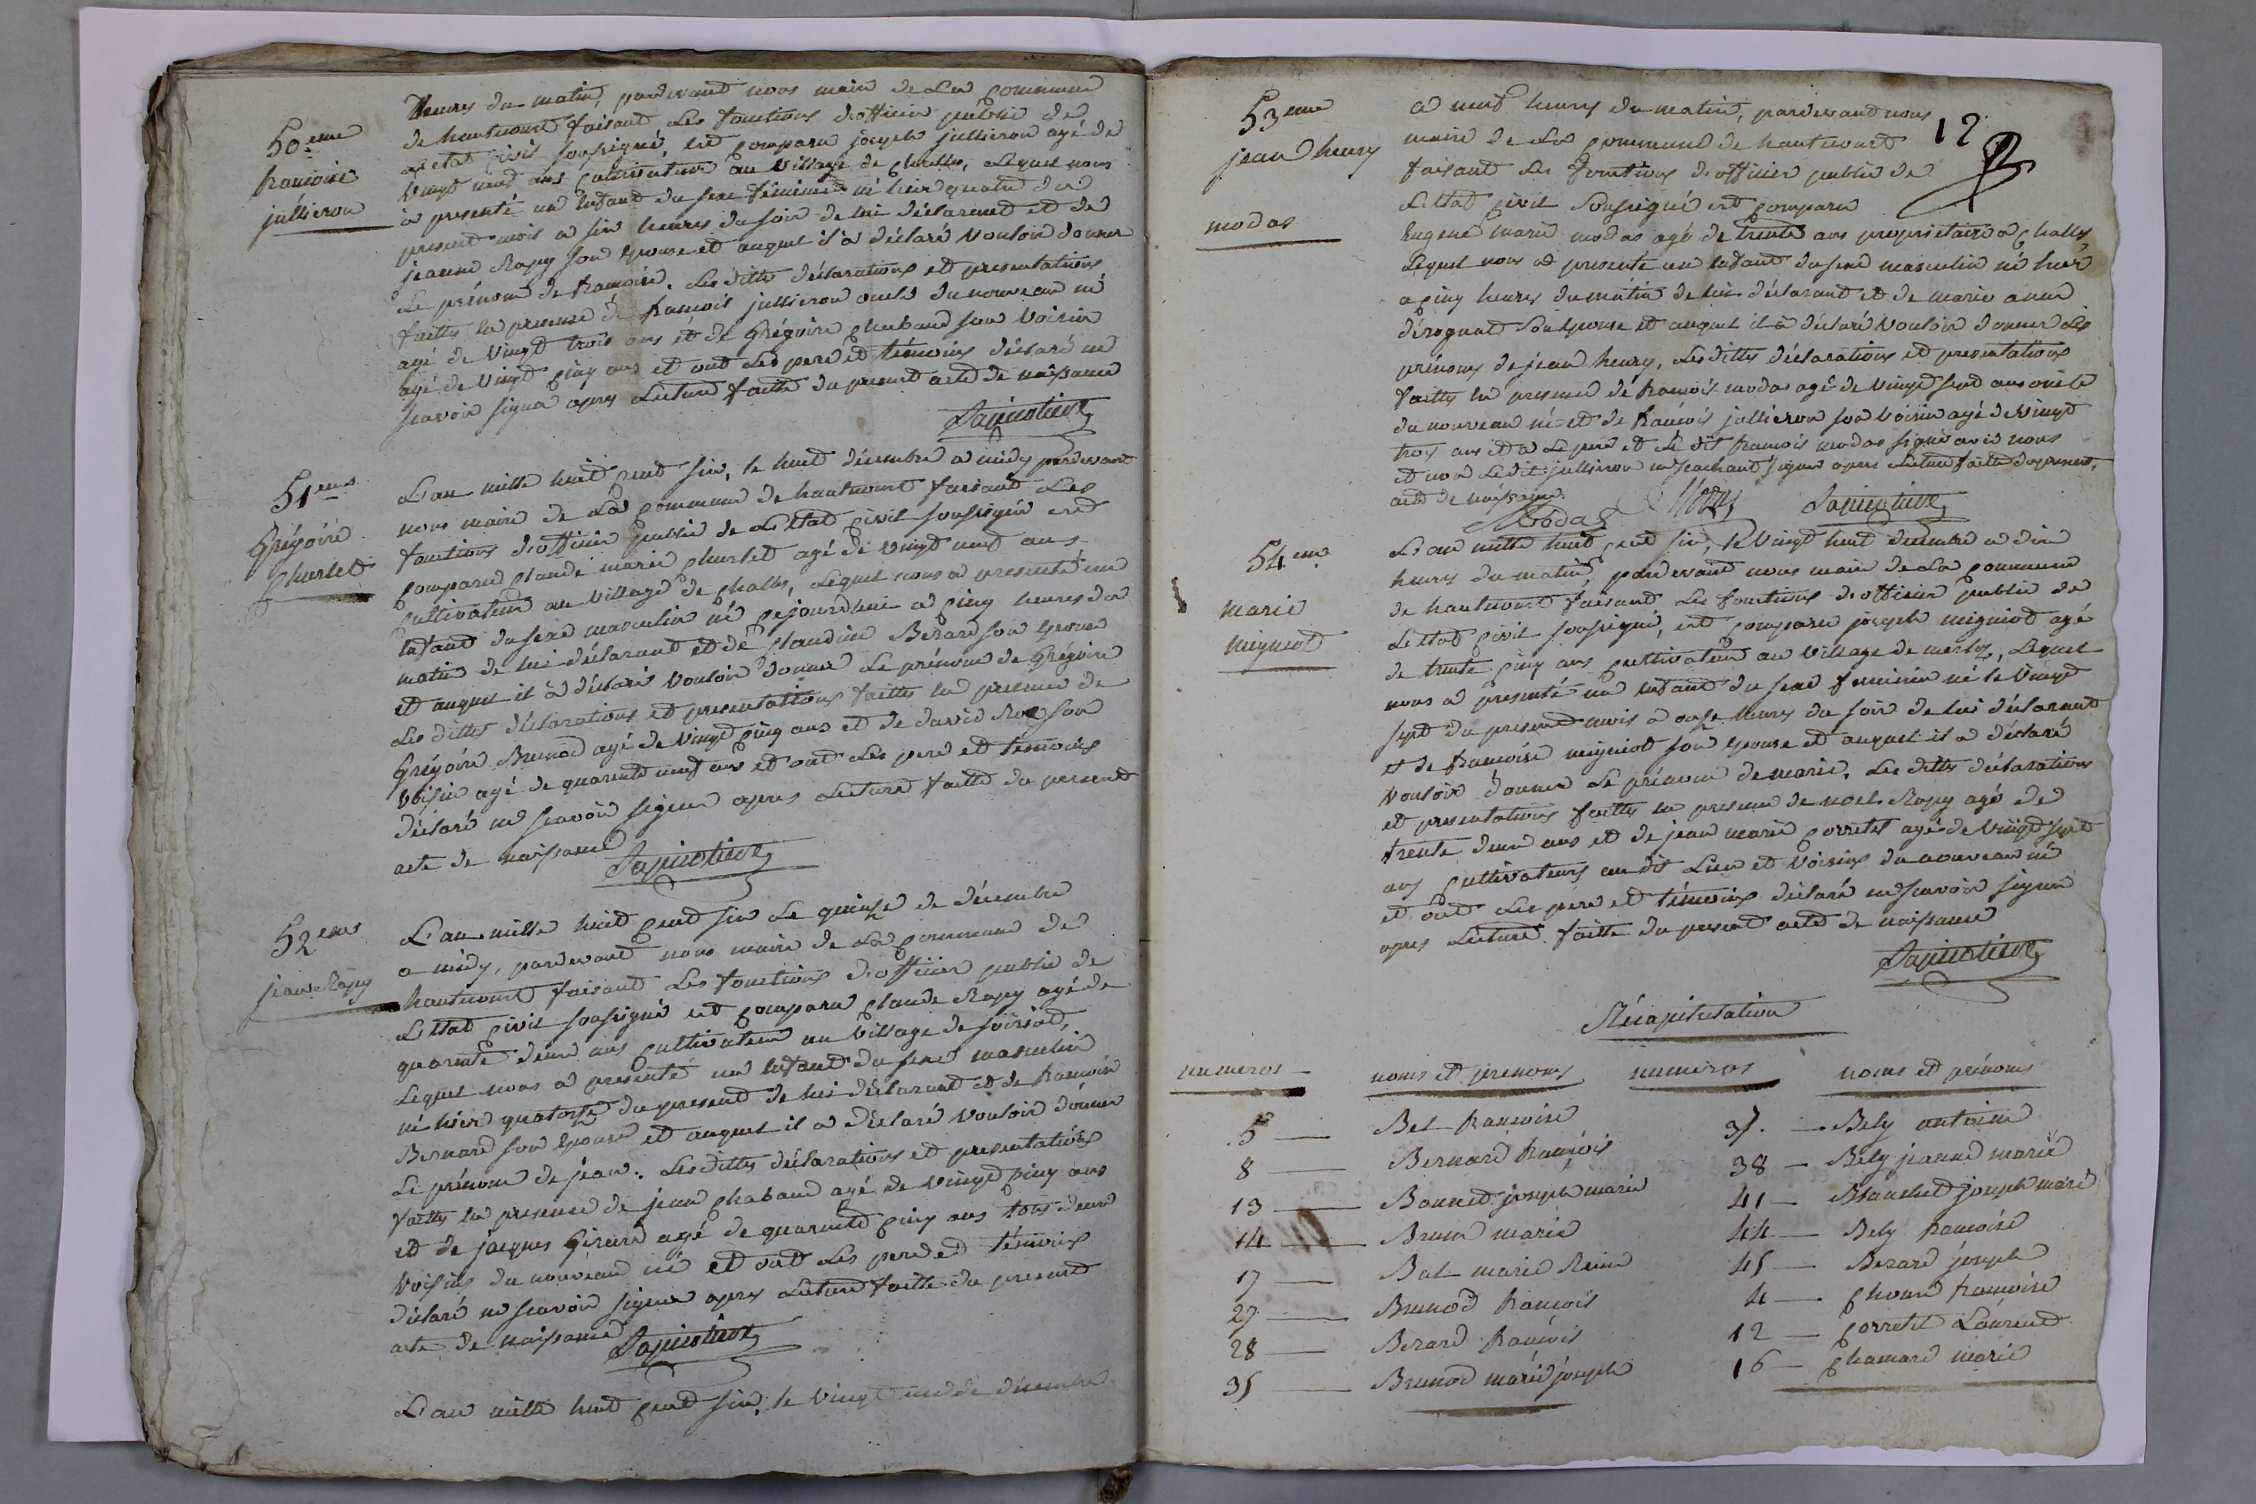 50eme
francoise
jullieron
heures du matin, pardevant nous maire de La commune
de hautecourt faisant Les fonctions d'officier public de
L'etat civil soussigné, est comparu joseph jullieron agé de
vingt neuf ans cultivateur au village de challes, Lequel nous
à presenté un enfant du sexe féminin né hier quatre du
present mois a six heures du soir de lui déclarant et de
jeanne Rapy son épouse et auquel il à déclaré vouloir donner
Le prénom de francoise. Les dittes déclarations et presentations
faittes en presence de francois jullieron oncle du nouveau né
agé de vingt trois ans et de Grégoire chaband son voisin
agé de vingt cinq ans et ont Les pere et témoins déclaré ne
scavoir signer apres Lecture faitte du present acte de naissance
51eme
Grégoire
Churlet
L'an mille huit cent six, le huit décembre a midy pardevant
nous maire de La commune de hautecourt faisant Les
fonctions d'officier public de L'Etat civil soussigné est
comparu claude marie churlet agé de vingt neuf ans
cultivateur au village de challes, Lequel nous a presenté un
enfant du sexe masculin né cejourdhui a cinq heures du
matin de lui déclarant et de claudine Bérard son épouse
et auquel il à déclaré vouloir donner Le prénom de Grégoire
Les dittes déclarations et presentations faittes en presence de
Grégoire Brunod agé de vingt cinq ans et de david Roc son
voisin agé de quarente neuf ans et ont Les pere et témoins
déclaré ne scavoir signer apres Lecture faitte du present
acte de naissance
52eme
jean Rapy
L'an mille huit cent six Le quinze de décembre
a midy, pardevant nous maire de La commune de
hautecourt faisant Les fonctions d'officier public de
L'Etat civil soussigné est comparu claude Rapy agé de
quarente deux ans cultivateur au village de
Lequel nous a presenté un enfant du sexe masculin
né hier quatorze du present de lui déclarant et de francoise
Bernard son épouse et auquel il a déclaré vouloir donner
Le prénom de jean. Les dittes déclarations et presentations
faittes en presence de jean chaband agé de vingt cinq ans
et de jacques Girard agé de quarente cinq ans tous deux
voisins du nouveau né et ont Les pere et témoins
déclaré ne scavoir signer apres Lecture faitte du present
acte de naissance
L'an mille huit cent six, le vingt de décembre
12
53eme
jean henry
modas
a neuf heures du matin, pardevant nous
maire de La commune de hautecourt
faisant Les fonctions d'officier public de
L'Etat civil soussigné est comparu
Eugene marie modas agé de trente ans proprietaire a challes,
Lequel nous a presenté un enfant du sexe masculin né hier
a cinq heures du matin de lui déclarant et de marie anne
son épouse et auquel il à déclaré vouloir donner Les
prénoms de jean henry, Les dittes déclarations et presentations
faittes en presence de francois modas agé de vingt sept ans oncle
du nouveau né et de francois jullieron son voisin agé de vingt
trois ans et a Le pere et Le dit francois modas signé avec nous
et non Ledit jullieron ne scachant signer apres Lecture faitte du present
acte de naissance.
Modas
54eme
marie
migniot
L'an mille huit cent six, le vingt huit décembre a dix
heures du matin pardevant nous maire de La commune
de hautecourt faisant Les fonctions d'officier public de
L'Etat civil soussigné, est comparu joseph migniot agé
de trente cinq ans cultivateur au village de , Lequel
nous a presenté un enfant du sexe feminin né le vingt
sept du present mois a onze heures du soir de lui déclarant
et de francoise migniot son épouse et auquel il a déclaré
vouloir donner Le prénom de marie. Les dittes déclarations
et presentations faittes en presence de noel Rapy agé de
trente deux ans et de jean marie corretet agé de vingt sept
ans cultivateurs au dit Lieu et voisins du nouveau né
et ont Les pere et témoins déclaré ne scavoir signer
apres Lecture faitte du present acte de naissance
Récapitulation
numeros noms et prenoms numeros noms et prénoms
5 Bel francoise 37 Bely antoine
8 Bernard francois 38 Bely jeanne marie
13 Bonnet joseph marie 41 Blanchet joseph marie
14 Brun marie 44 Bely francoise
17 Bal marie Reine 45 Berard joseph
27 Brunod francois 4 francoise
28 Berard francois 12 Corretet Laurend
35 Brunod marie joseph 16 Chamard marie